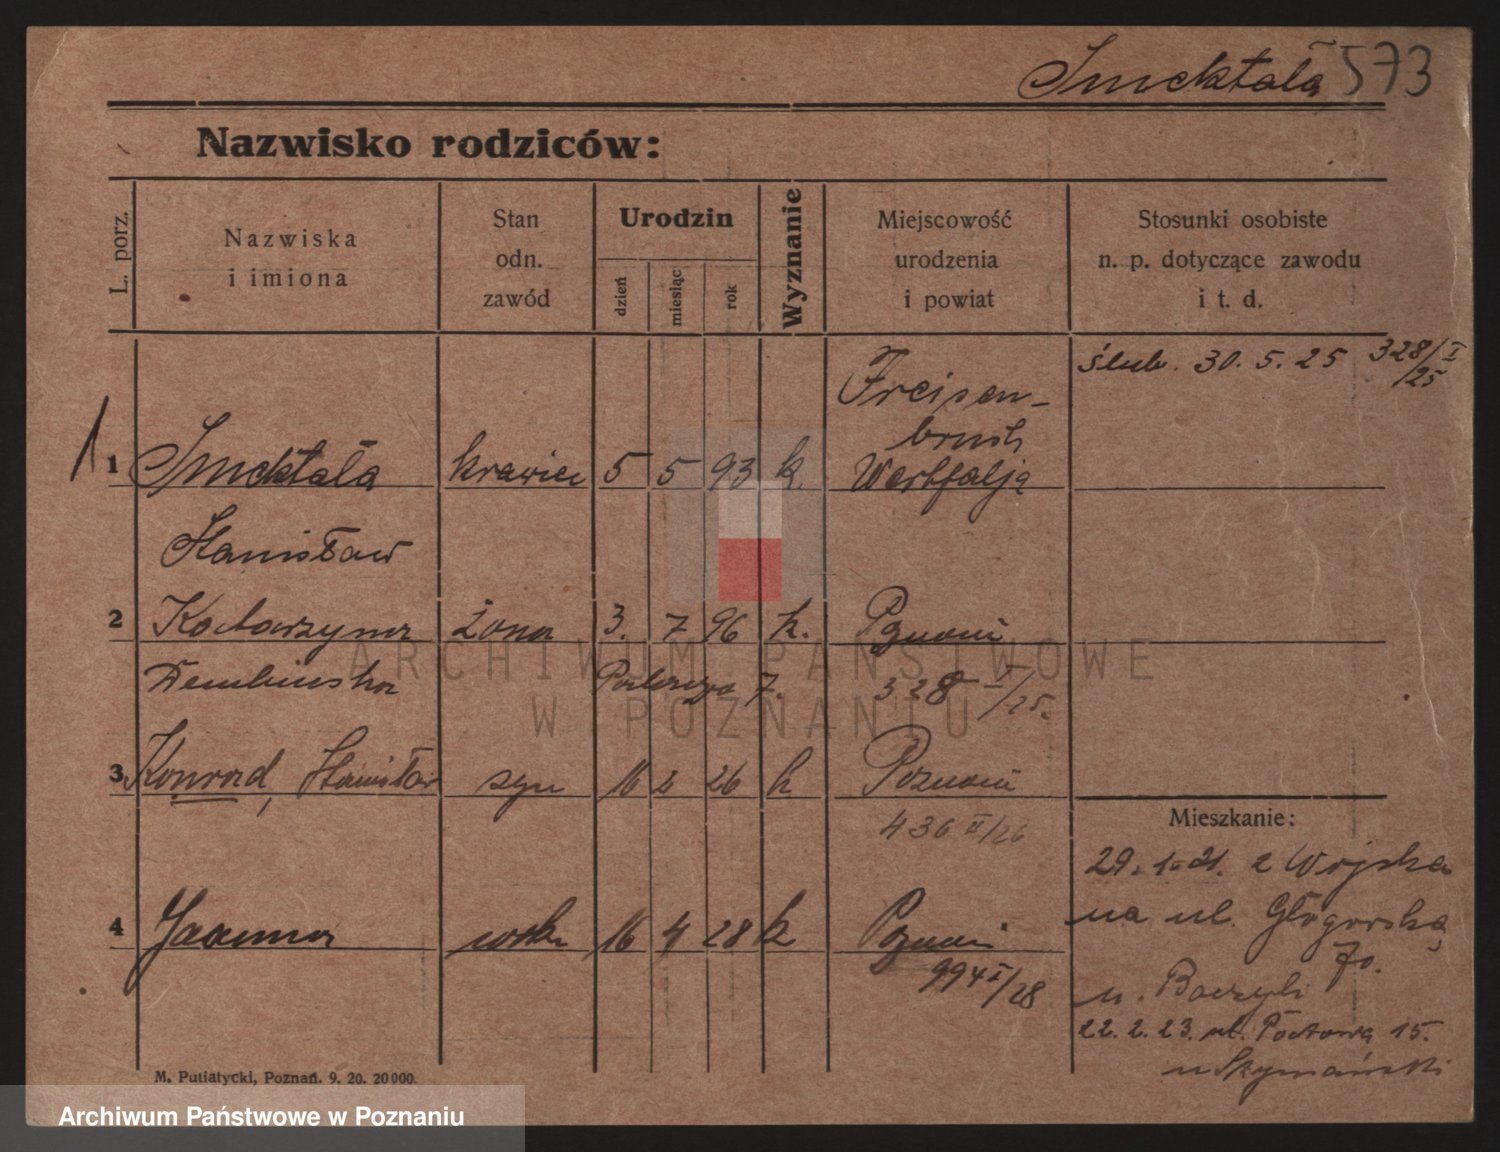 Smektała 573
Nazwisko rodziców:
L. porz.
Nazwiska
i imiona
Stan
odn.
zawód
Urodzin
dzień
miesiąc
rok
Wyznanie
Miejscowość
urodzenia
i powiat
Stosunki osobiste
n. p. dotyczące zawodu
i t. d.
ślub. 30. 5. 25 328/I
/25
Freisen-
bruch
1 Smektała krawiec 5 5 93 k. Westfalja
Stanisław
2 Katarzyna żona 3. 7 96 k. Poznań
Dembińska 7. 328 I/25.
3 Konrad, Stanisław syn 16 2 26 k Poznań
436 II/26
4 Janina córka 16 4 28 k Poznań
994 I/28
Mieszkanie:
29. 1. 21. z Wojska
na ul. Głogowską
70.
u.
22. 2. 23. ul. 15.
u
M. Putiatycki, Poznań. 9. 20. 20000.
ARCHIWUM PAŃSTWOWE
W POZNANIU
Archiwum Państwowe w Poznaniu